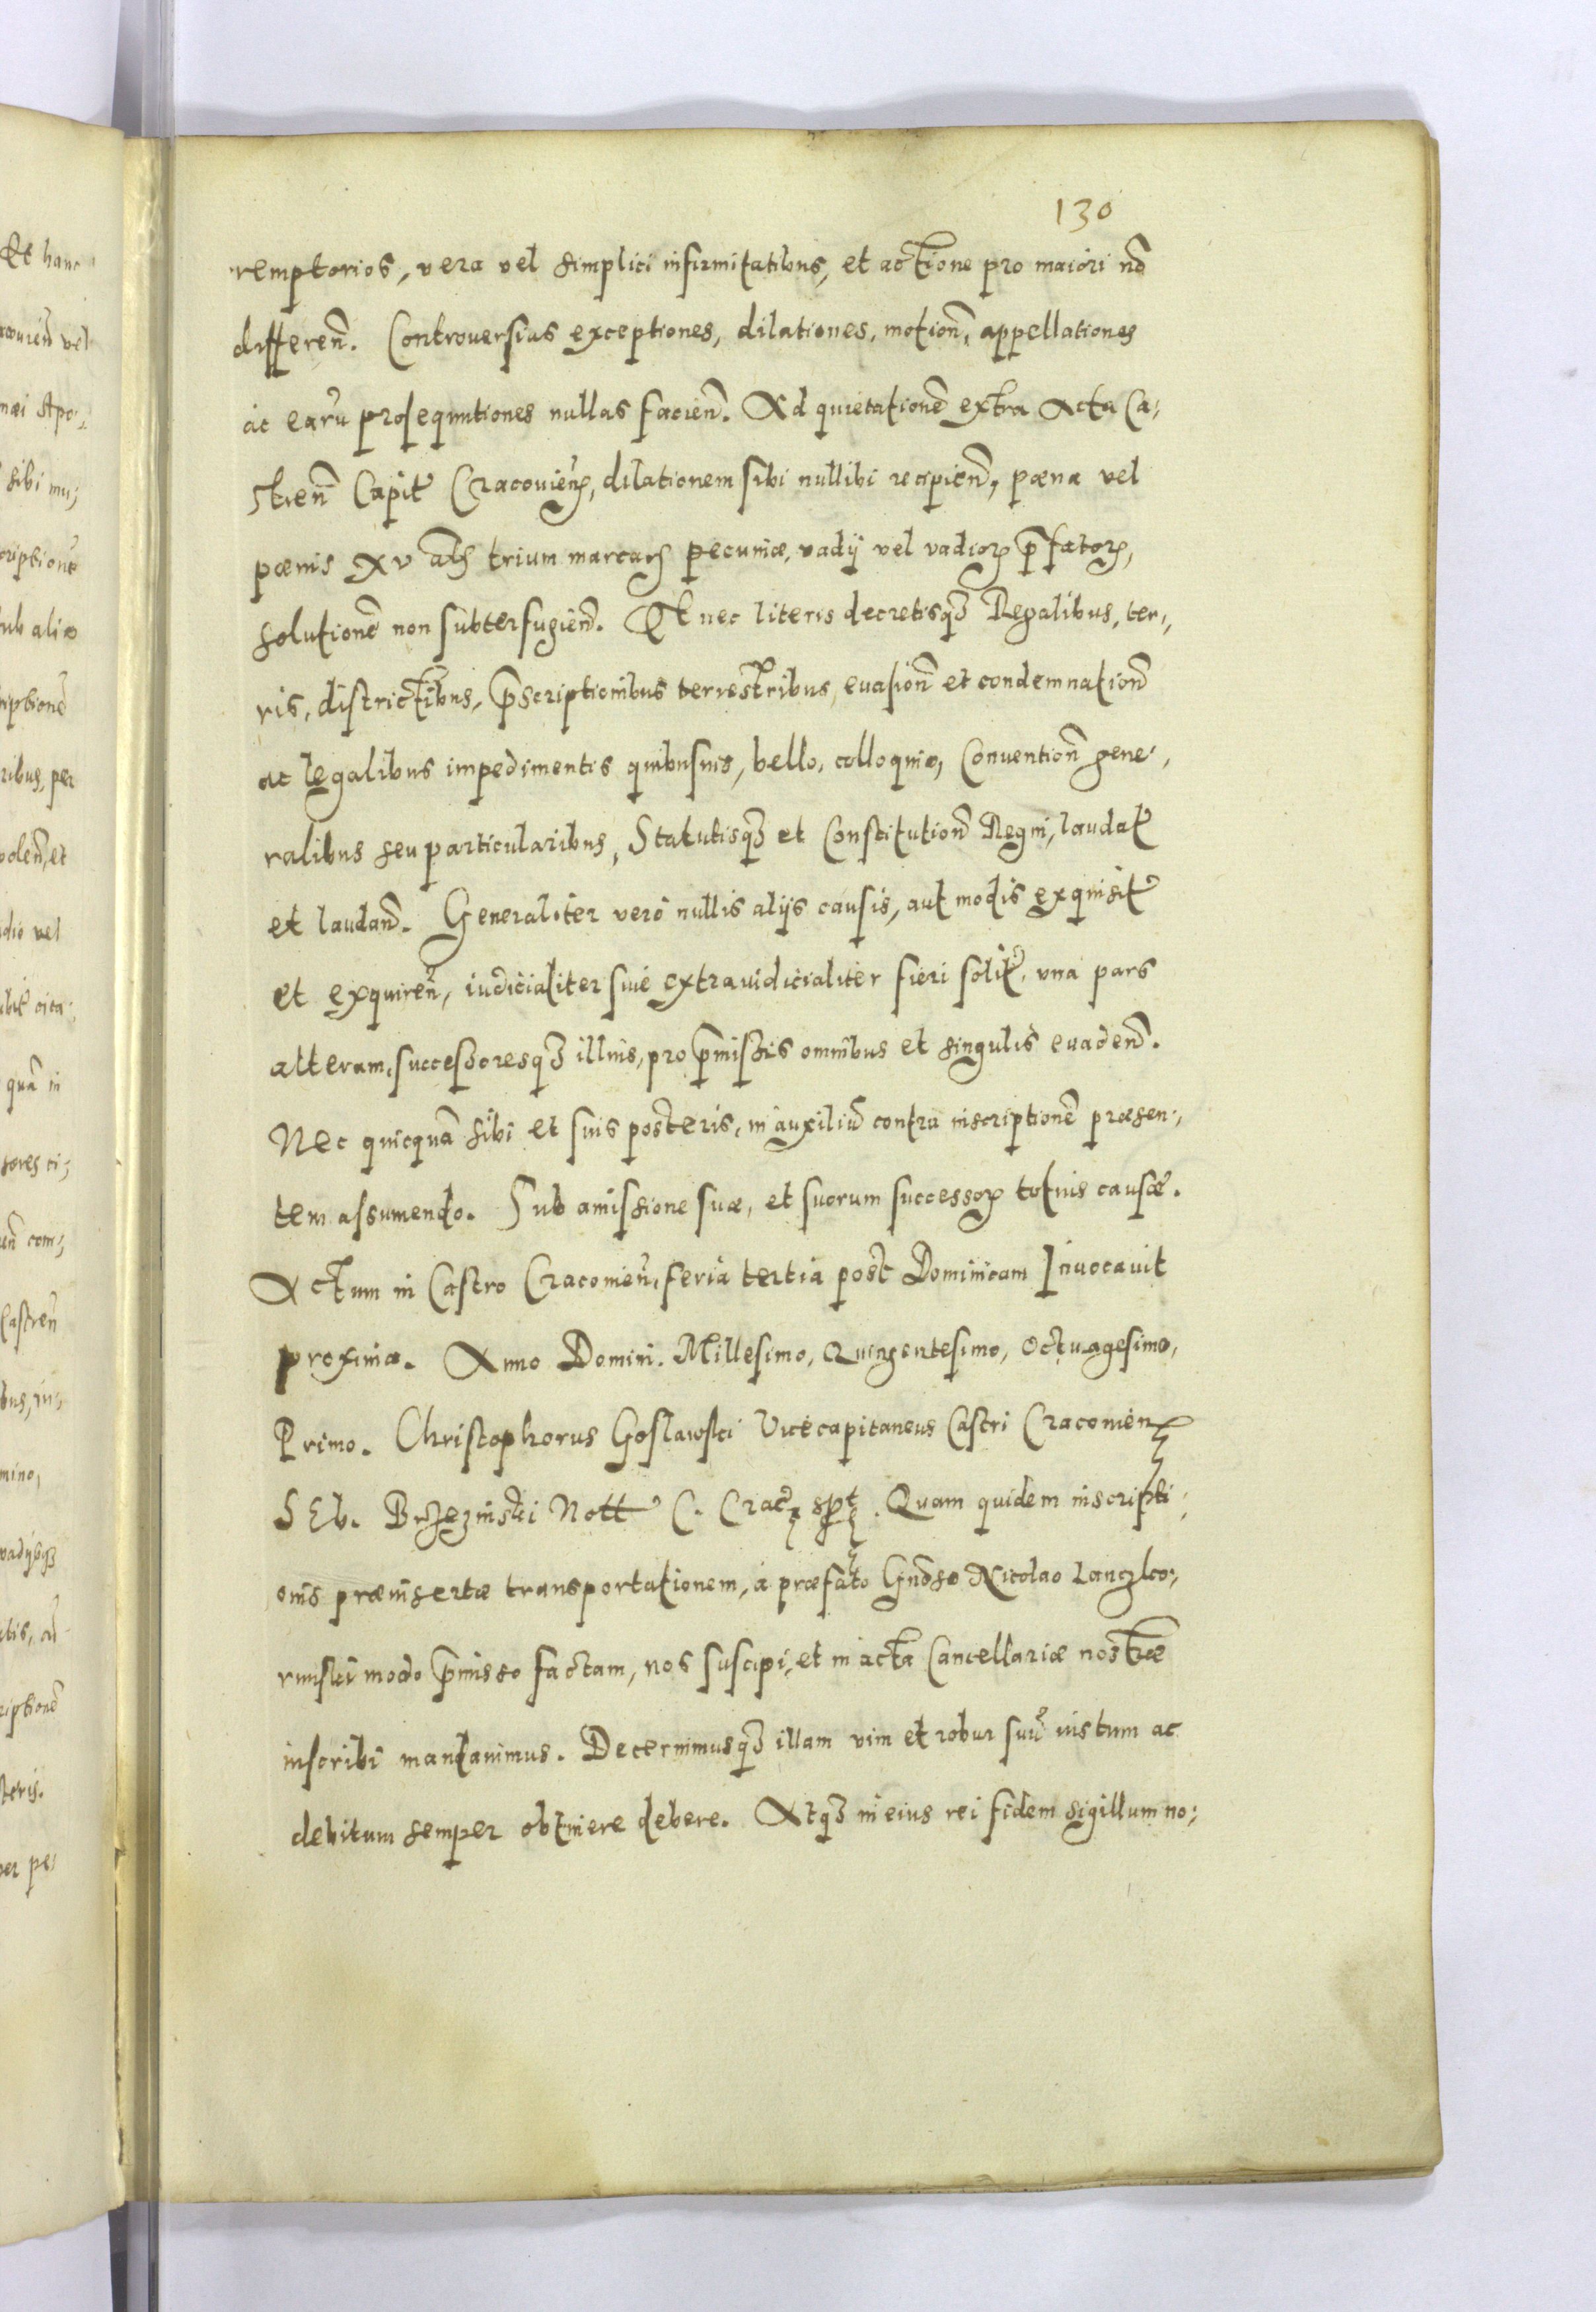 130
remptorios, vera vel simplici infirmitatibus, et actione pro maiori nō
differen̄. Controversias exceptiones, dilationes, motion̄, appellationes
ac earū prosequutiones nullas facien̄. Ad quietationē extra Acta Ca:
stren̄ Capit Cracovien̄, dilationem sibi nullibi recipien̄, pœna vel
pœnis XV als trium marcarꝝ pecuniæ, vadij vel vadiorꝝ p̄fatorꝝ,
solutionē non subterfugien̄. Et nec literis decretisqꝫ Regalibus, ter:
ris, districtibus, p̄scriptionibus terrestribus, evasion̄ et condemnation̄
ac legalibus impedimentis quibusuis, bello, colloquio, Convention̄ gene:
ralibus seu particularibus, Statutisqꝫ et Constitution̄ Regni, laudat
et laudan̄. Generaliter verò nullis alijs causis, aut modis exquisit
et exquiren̄, iudicialiter siue extraiudicialiter fieri solit, una pars
alteram, successoresqꝫ illius, pro p̄missis omnibus et singulis evaden̄.
Nec quicquā sibi et suis posteris, in auxiliū contra inscriptionē præsen:
tem assumendo. Sub amissione suæ, et suorum successorꝝ totius causæ.
Actum in Castro Cracouien̄, feria tertia post Dominicam Invocavit
proxima. Anno Domini. Millesimo, Quingentesimo, Octuagesimo,
Primo. Christophorus Goslawski Vicecapitaneus Castri Cracouien
SEb. Brzezinski Nott C. Crac spt. Quam quidem inscripti:
onis præinsertæ transportationem, à præfato Gn̄oso Nicolao Lanczko:
runski modo p̄misso factam, nos suscipi, et in acta Cancellariæ nostræ
inscribi mandauimus. Decernimusqꝫ illam vim et robur suū iustum ac
debitum semper obtinere debere. Atqꝫ in eius rei fidem sigillum no: